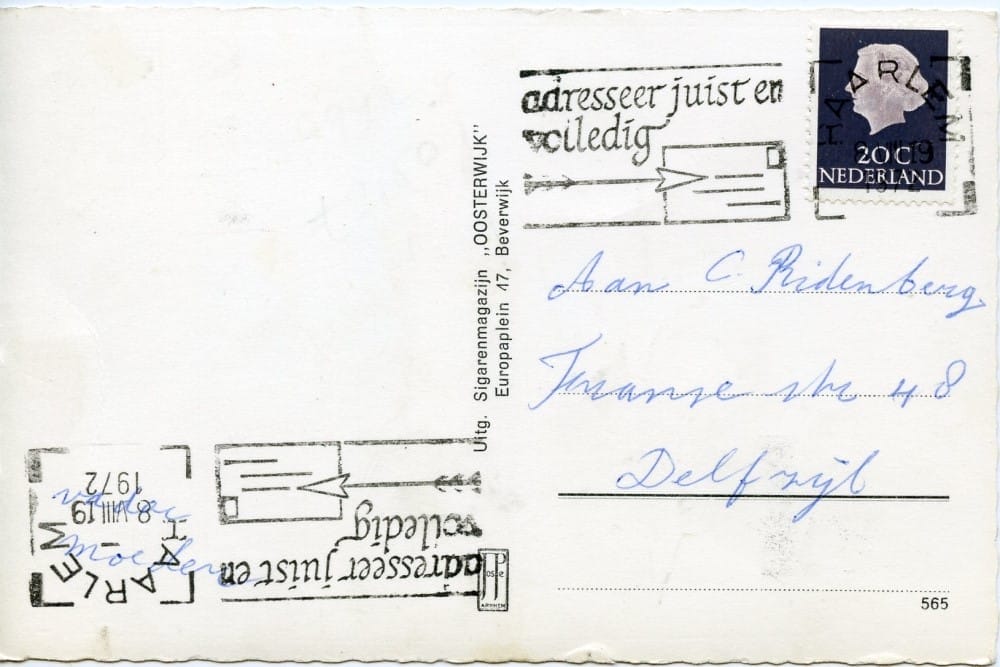 adresseer juist en
volledig
HAARLEM
8.VIII.19
1972
20 C
NEDERLAND
Uitg. Sigarenmagazijn „OOSTERWIJK”
Europaplein 17, Beverwijk
Aan C. Ridenberg.
48
Delfzijl
565
HAARLEM
8.VIII.19
1972
adresseer juist en
volledig
vader
Moeder
ARNHEM